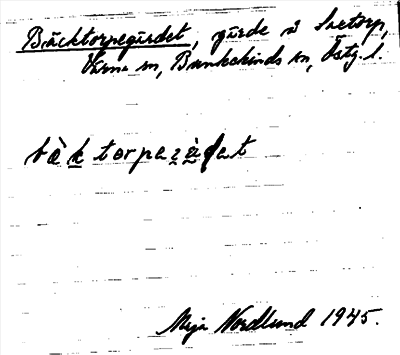 Bäcktorpegärdet, gärde å Sætorp,
Värna sn, Bankekinds hd, Östg. l.
bàktorpazàdat
Meja Nordlund 1945.